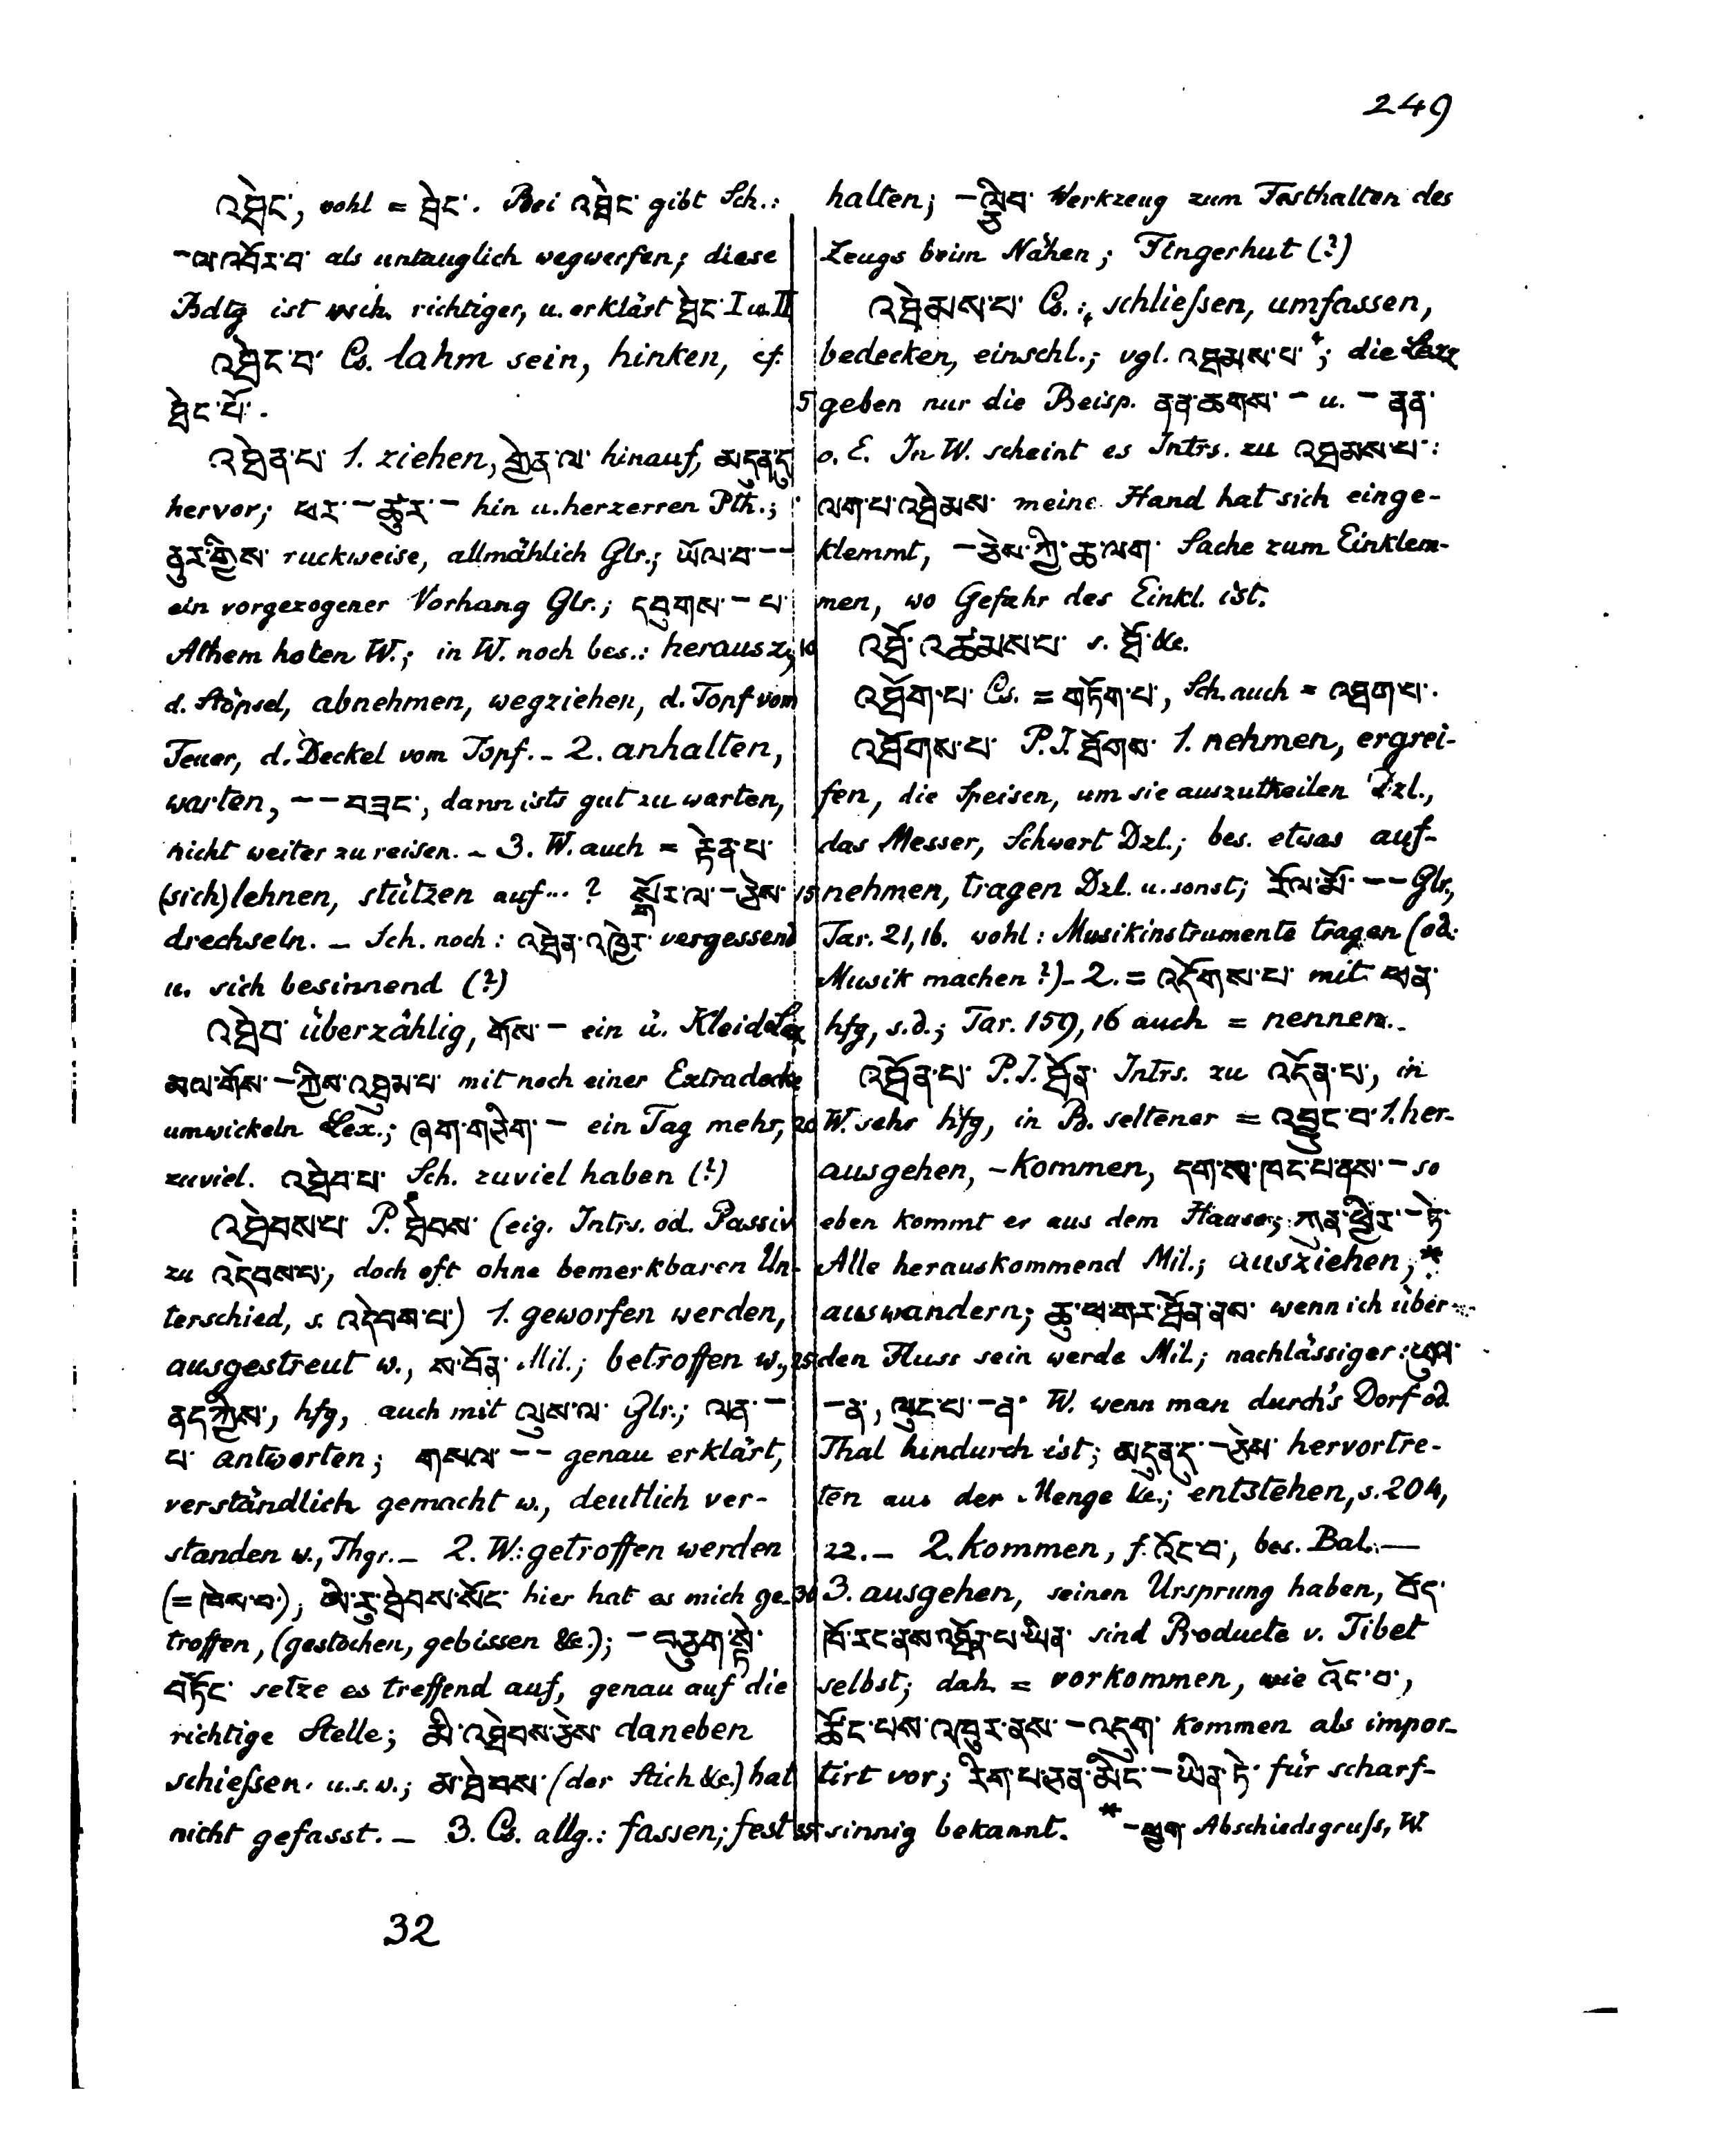 249
འཐེང་, wohl = ཐེང་. Bei འཐེང་ gibt Sch.:
-ལ་འབོར་བ་ als untauglich wegwerfen; diese
Bdtg ist wch. richtiger, u. erklärt ཐེང་ I u. II
འཐེང་བ་ Cs. lahm sein, hinken, cf.
ཐེང་པོ་.
འཐེན་པ་ 1. ziehen, གྱེན་ལ་ hinauf, མདུན་དུ
hervor; ཕར་ - ཚུར་ - hin u. herzerren Pth.;
ནུར་གྱིས་ ruckweise, allmählich Glr.; ཡོལ་བ་ - -
ein vorgezogener Vorhang Glr.; དབུགས་ - པ་
Athem holen W.; in W. noch bes.: heraus z.,
d. Stöpsel, abnehmen, wegziehen, d. Topf vom
Feuer, d. Deckel vom Topf. - 2. anhalten,
warten, - - བཟང་, dann ists gut zu warten,
nicht weiter zu reisen. - 3. W. auch = རྟེན་པ་
(sich) lehnen, stützen auf ... ? སྐོར་ལ་ - ཅེས་
drechseln. - Sch. noch: འཐེན་འཁྱེར་ vergessend
u. sich besinnend (?)
འཐེབ་ überzählig, གོས་ - ein ü. Kleid Lex
མལ་གོས་ - ཀྱིས་འཐུམ་པ་ mit noch einer Extradecke
umwickeln Lex.; ཞག་གཅིག་ - ein Tag mehr,
zuviel. འཐེབ་པ་ Sch. zuviel haben (?)
འཐེབས་པ་ P. ཐེབས་ (eig. Intrs. od. Passiv
zu འདེབས་པ་, doch oft ohne bemerkbaren Un-
terschied, s. འདེབས་པ་) 1. geworfen werden,
ausgestreut w., ས་བོན་ Mil.; betroffen w.,
ནད་ཀྱིས་, hfg, auch mit ལུས་ལ་ Glr.; ལན་ -
པ་ antworten; གསལ་ - - genau erklärt,
verständlich gemacht w., deutlich ver-
standen w., Thgr. - 2. W.: getroffen werden
(= ཁེས་བ་); ཨི་རུ་ཐེབས་སོང་ hier hat es mich ge-
troffen, (gestochen, gebissen &c.); - བཅུག་སྟེ་
བཏོང་ setze es treffend auf, genau auf die
richtige Stelle; མི་འཐེབས་ཅེས་ daneben
schießen. u.s.w.; མ་ཐེབས་ (der Stich &c.) hat
nicht gefasst. - 3. Cs. allg.: fassen; fest
32
halten; - ལྕིབ་ Werkzeug zum Festhalten des
Zeugs beim Nähen; Fingerhut (?)
འཐེམས་པ་ Cs.: schließen, umfassen,
bedecken, einschl.; vgl. འཐམས་པ་; die Lexx
5 geben nur die Beisp. ནན་ཆགས་ - u. - ནན་
o. E. In W. scheint es Intrs. zu འཐམས་པ་:
ལག་པ་འཐེམས་ meine Hand hat sich einge-
klemmt, - ཅེས་ཀྱི་ཆ་ལག་ Sache zum Einklem-
men, wo Gefahr des Einkl. ist.
10 འཐོ་འཚམས་པ་ s. ཐོ་ &c.
འཐོག་པ་ Cs. = གཏོག་པ་, Sch. auch = འཐག་པ་.
འཐོགས་པ་ P.I. ཐོགས་ 1. nehmen, ergrei-
fen, die Speisen, um sie auszutheilen Dzl.,
das Messer, Schwert Dzl.; bes. etwas auf-
15 nehmen, tragen Dzl. u. sonst; རོལ་མོ་ - - Glr.,
Tar. 21,16. wohl: Musikinstrumente tragen (od.
Musik machen?) - 2. = འདོགས་པ་ mit ཕན་
hfg, s.d.; Tar. 159,16 auch = nennen. -
འཐོན་པ་ P.I. ཐོན་ Intrs. zu འདོན་པ་, in
20 W. sehr hfg, in B. seltener = འབྱུང་བ་ 1. her-
ausgehen, -kommen, དག་ས་ཁང་པ་ནས་ - so
eben kommt er aus dem Hause; ཀུན་ཕྱིར་ - ཏེ་
Alle herauskommend Mil.; ausziehen, *
auswandern; ཆུ་ཕ་གར་ཐོན་ནས་ wenn ich über
25 den Fluss sein werde Mil.; nachlässiger: ཡུལ་
- ན་, ལུང་པ་ - ན་ W. wenn man durch's Dorf od.
Thal hindurch ist; མདུན་དུ་ - ཅེས་ hervortre-
ten aus der Menge &c.; entstehen, s. 204,
22. - 2. kommen, f. འོང་བ་, bes. Bal. -
30 3. ausgehen, seinen Ursprung haben, བོད་
ཁོ་རང་ནས་འཐོན་པ་ཡིན་ sind Producte v. Tibet
selbst; dah. = vorkommen, wie འོང་བ་,
ཚོང་པས་འཁུར་ནས་ - འདུག་ kommen als impor-
tirt vor; རིག་པ་ཅན་མིང་ - ཡིན་ཏེ་ für scharf-
35 sinnig bekannt. * - ཕྱག་ Abschiedsgruß, W.